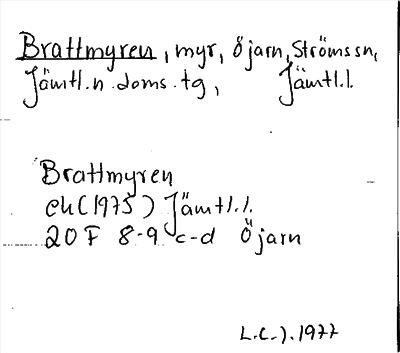 Brattmyren, myr, Öjarn, Ströms sn,
Jämtl.n.doms.tg, Jämtl.l.
Brattmyren
ek(1975) Jämtl.l.
20 F 8-9 c-d Öjarn
L.C.J.1977